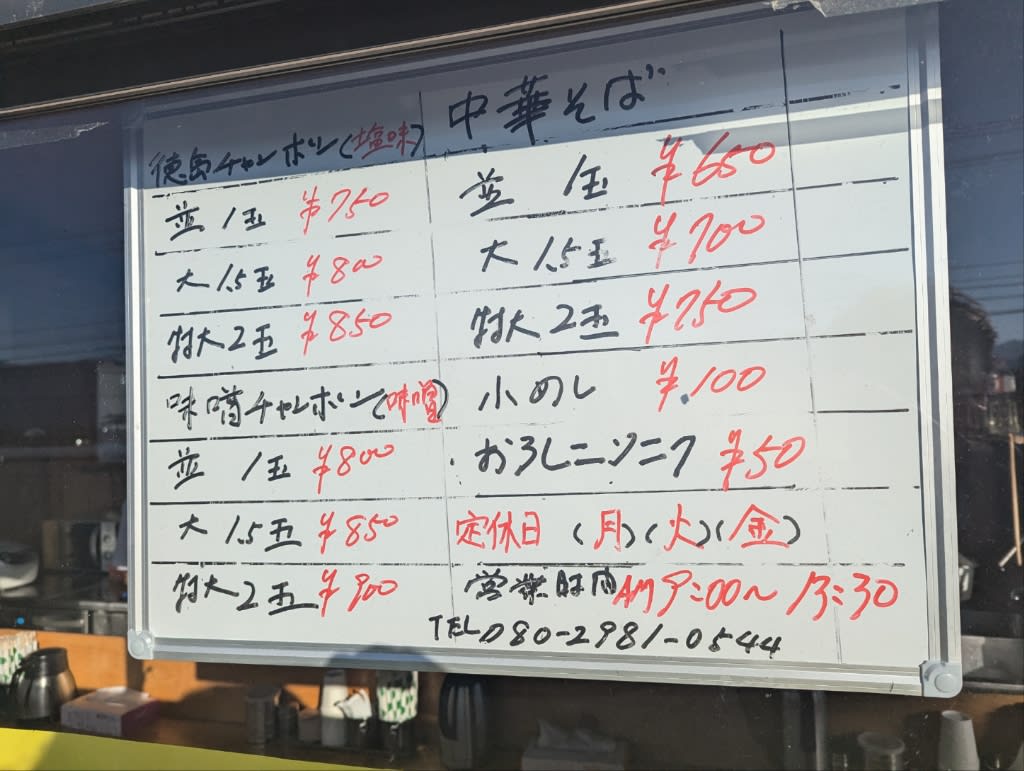 徳島チャンポン(塩味)
並 1玉 ¥750
大 1.5玉 ¥800
特大2玉 ¥850
味噌チャンポン(味噌)
並 1玉 ¥800
大 1.5玉 ¥850
特大2玉 ¥900
中華そば
並 1玉 ¥650
大 1.5玉 ¥700
特大2玉 ¥750
小めし ¥100
おろしニンニク ¥50
定休日 (月)(火)(金)
営業時間 AM9:00〜13:30
TEL 080-2981-0544